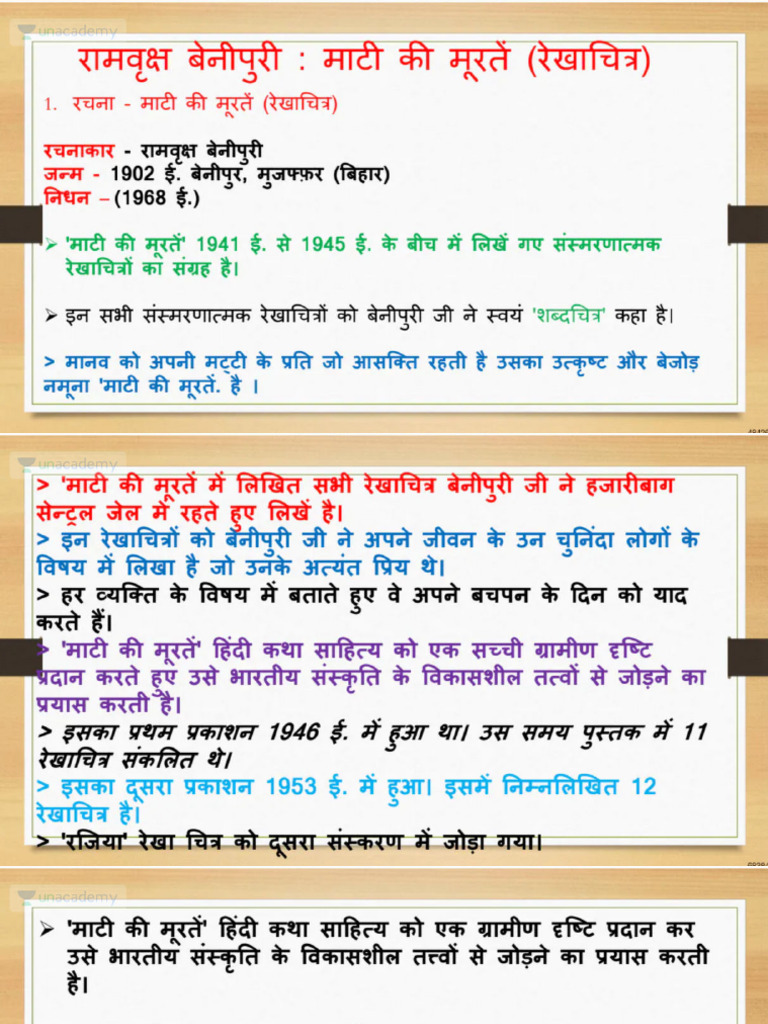 unacademy
रामवृक्ष बेनीपुरी : माटी की मूरतें (रेखाचित्र)
1. रचना - माटी की मूरतें (रेखाचित्र)
रचनाकार - रामवृक्ष बेनीपुरी
जन्म - 1902 ई. बेनीपुर, मुजफ्फ़र (बिहार)
निधन – (1968 ई.)
➢ 'माटी की मूरतें' 1941 ई. से 1945 ई. के बीच में लिखें गए संस्मरणात्मक
रेखाचित्रों का संग्रह है।
➢ इन सभी संस्मरणात्मक रेखाचित्रों को बेनीपुरी जी ने स्वयं 'शब्दचित्र' कहा है।
> मानव को अपनी मट्टी के प्रति जो आसक्ति रहती है उसका उत्कृष्ट और बेजोड़
नमूना 'माटी की मूरतें. है ।
unacademy
> 'माटी की मूरतें में लिखित सभी रेखाचित्र बेनीपुरी जी ने हजारीबाग
सेन्ट्रल जेल में रहते हुए लिखें है।
> इन रेखाचित्रों को बेनीपुरी जी ने अपने जीवन के उन चुनिंदा लोगों के
विषय में लिखा है जो उनके अत्यंत प्रिय थे।
> हर व्यक्ति के विषय में बताते हुए वे अपने बचपन के दिन को याद
करते हैं।
> 'माटी की मूरतें' हिंदी कथा साहित्य को एक सच्ची ग्रामीण दृष्टि
प्रदान करते हुए उसे भारतीय संस्कृति के विकासशील तत्वों से जोड़ने का
प्रयास करती है।
> इसका प्रथम प्रकाशन 1946 ई. में हुआ था। उस समय पुस्तक में 11
रेखाचित्र संकलित थे।
> इसका दूसरा प्रकाशन 1953 ई. में हुआ। इसमें निम्नलिखित 12
रेखाचित्र है।
> 'रजिया' रेखा चित्र को दूसरा संस्करण में जोड़ा गया।
unacademy
➢ 'माटी की मूरतें' हिंदी कथा साहित्य को एक ग्रामीण दृष्टि प्रदान कर
उसे भारतीय संस्कृति के विकासशील तत्त्वों से जोड़ने का प्रयास करती
है।